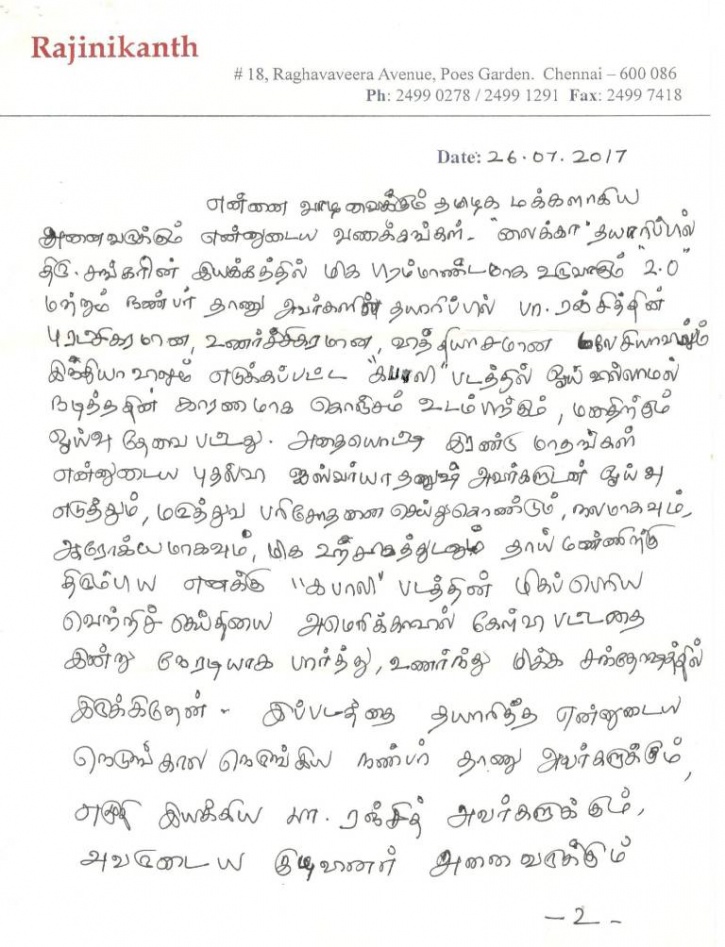 Rajinikanth
# 18, Raghavaveera Avenue, Poes Garden. Chennai – 600 086
Ph: 2499 0278 / 2499 1291 Fax: 2499 7418
Date: 26.07.2017
என்னை வாழ வைக்கும் தமிழக மக்களாகிய
அனைவருக்கும் என்னுடைய வணக்கங்கள். "லைக்கா" தயாரிப்பில்
திரு. சங்கரின் இயக்கத்தில் மிக பிரம்மாண்டமாக உருவாகும் "2.0"
மற்றும் நண்பர் தாணு அவர்களின் தயாரிப்பில் பா. ரஞ்சித்தின்
புரட்சிகரமான, உணர்ச்சிகரமான, வித்தியாசமான மலேசியாவிலும்
இந்தியாவிலும் எடுக்கப்பட்ட "கபாலி" படத்தில் ஓய்வில்லாமல்
நடித்ததின் காரணமாக கொஞ்சம் உடம்பிற்கும், மனதிற்கும்
ஓய்வு தேவை பட்டது. அதையொட்டி இரண்டு மாதங்கள்
என்னுடைய புதல்வி ஐஸ்வர்யா தனுஷ் அவர்களுடன் ஓய்வு
எடுத்தும், மருத்துவ பரிசோதனை செய்துகொண்டும், நலமாகவும்,
ஆரோக்யமாகவும், மிக உற்சாகத்துடனும் தாய் மண்ணிற்கு
திரும்பிய எனக்கு "கபாலி" படத்தின் மிகப் பெரிய
வெற்றிச் செய்தியை அமெரிக்காவில் கேள்வி பட்டதை
இன்று நேரடியாக பார்த்து, உணர்ந்து மிக்க சந்தோஷத்தில்
இருக்கிறேன். இப்படத்தை தயாரித்த என்னுடைய
நெடுங்கால நெருங்கிய நண்பர் தாணு அவர்களுக்கும்,
எழுதி இயக்கிய பா. ரஞ்சித் அவர்களுக்கும்,
அவருடைய குழுவினர் அனைவருக்கும்
- 2 -